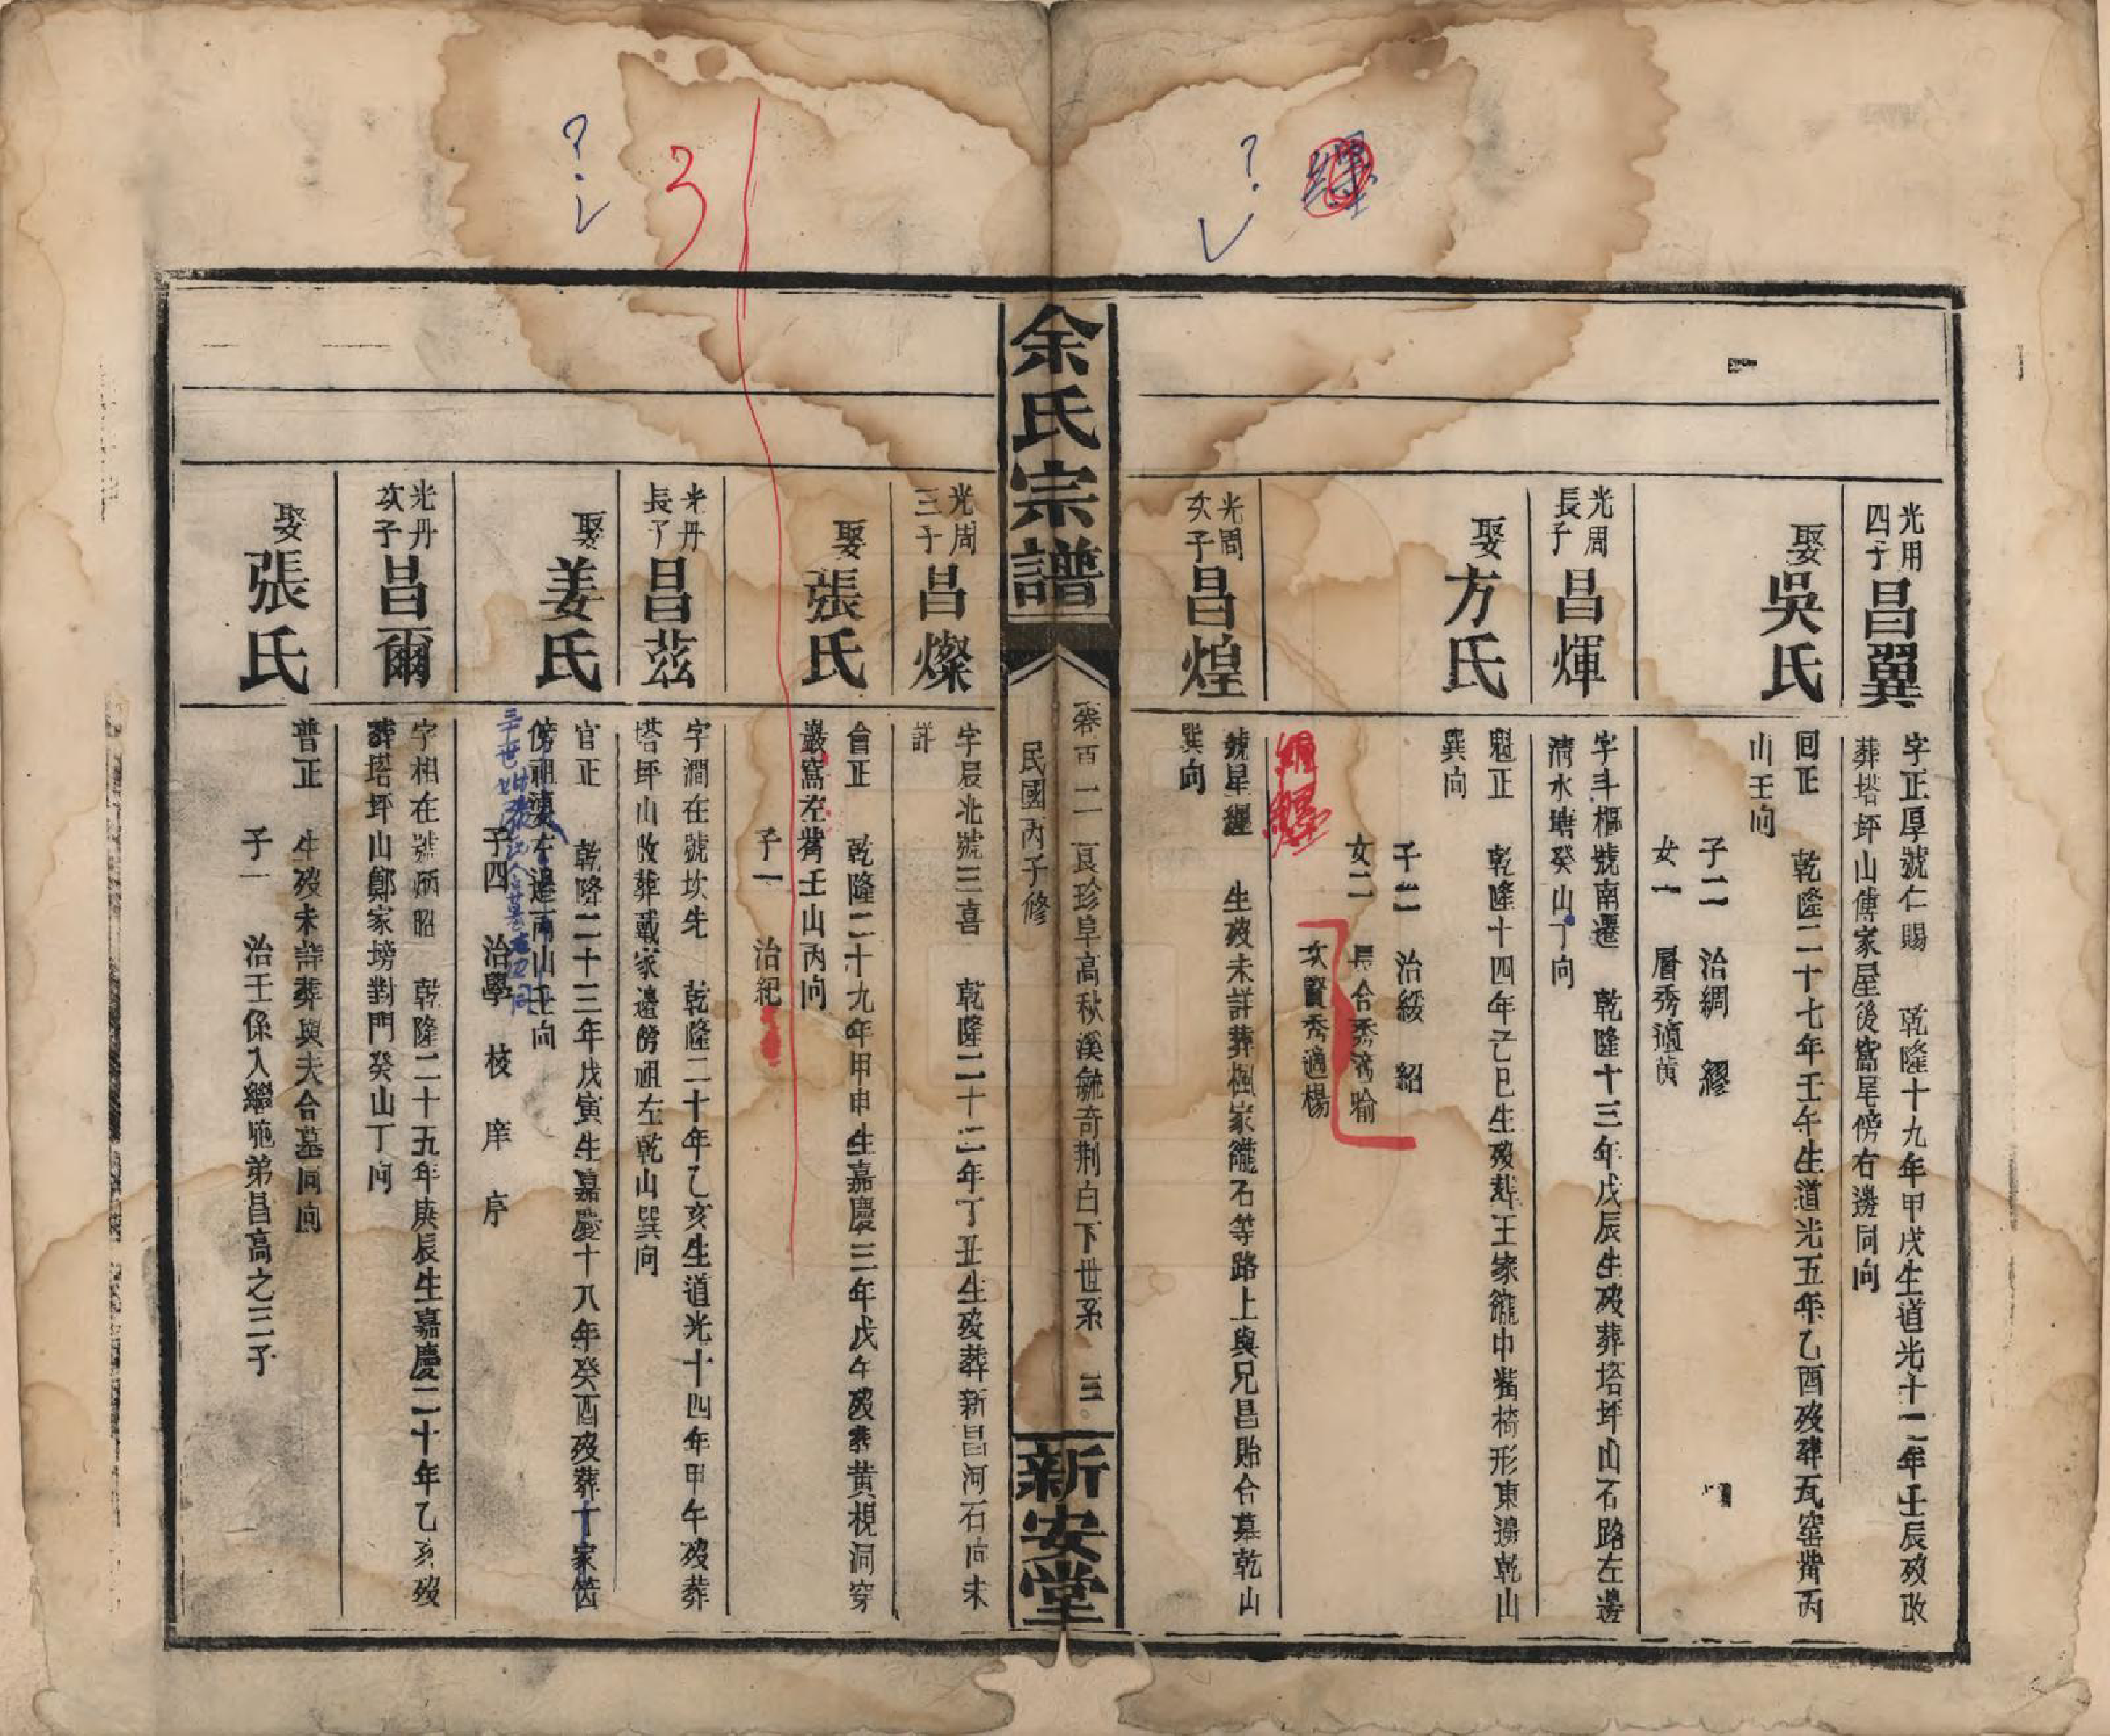 光用
四子
昌翼
字正厚號仁賜 乾隆十九年甲戌生道光十二年壬辰歿改
葬塔坪山傅家屋後窩星傍右邊同向
娶吳氏
回正 乾隆二十七年壬午生道光五年乙酉歿葬瓦窑嘴丙
山壬向
子二 治綢 繆
女一 層秀適黃
光周
長子
昌煇
字斗樞號南遷 乾隆十三年戊辰生歿葬塔坪山石路左邊
清水塘癸山丁向
娶方氏
魁正 乾隆十四年己巳生歿葬王家龍中嘴椅形東邊乾山
巽向
子二 治綏 紹
女二 長合秀適喻
次賢秀適楊
光周
次子
昌煌
號星纏 生歿未詳葬楓家龍石等路上與兄昌貽合墓乾山
巽向
余氏宗譜
卷百二 良珍阜高秋溪毓奇荆白下世系 三
民國丙子修
新安堂
光周
三子
昌燦
字辰北號三喜 乾隆二十二年丁丑生歿葬新昌河石向未
詳
娶張氏
會正 乾隆二十九年甲申生嘉慶三年戊午歿葬黃梘洞穿
巖窩左嘴壬山丙向
子一 治紀
光丹
長子
昌茲
字澗在號坎先 乾隆二十年乙亥生道光十四年甲午歿葬
塔坪山收葬戴家邊傍祖左乾山巽向
娶姜氏
官正 乾隆二十三年戊寅生嘉慶十八年癸酉歿葬丁家嘴
傍祖墳左邊丙山壬向
子四 治學 校 庠 序
光丹
次子
昌爾
字相在號炳昭 乾隆二十五年庚辰生嘉慶二十年乙亥歿
葬塔坪山鄭家塝對門癸山丁向
娶張氏
普正 生歿未詳葬與夫合墓同向
子一 治王係入繼嫡弟昌高之三子